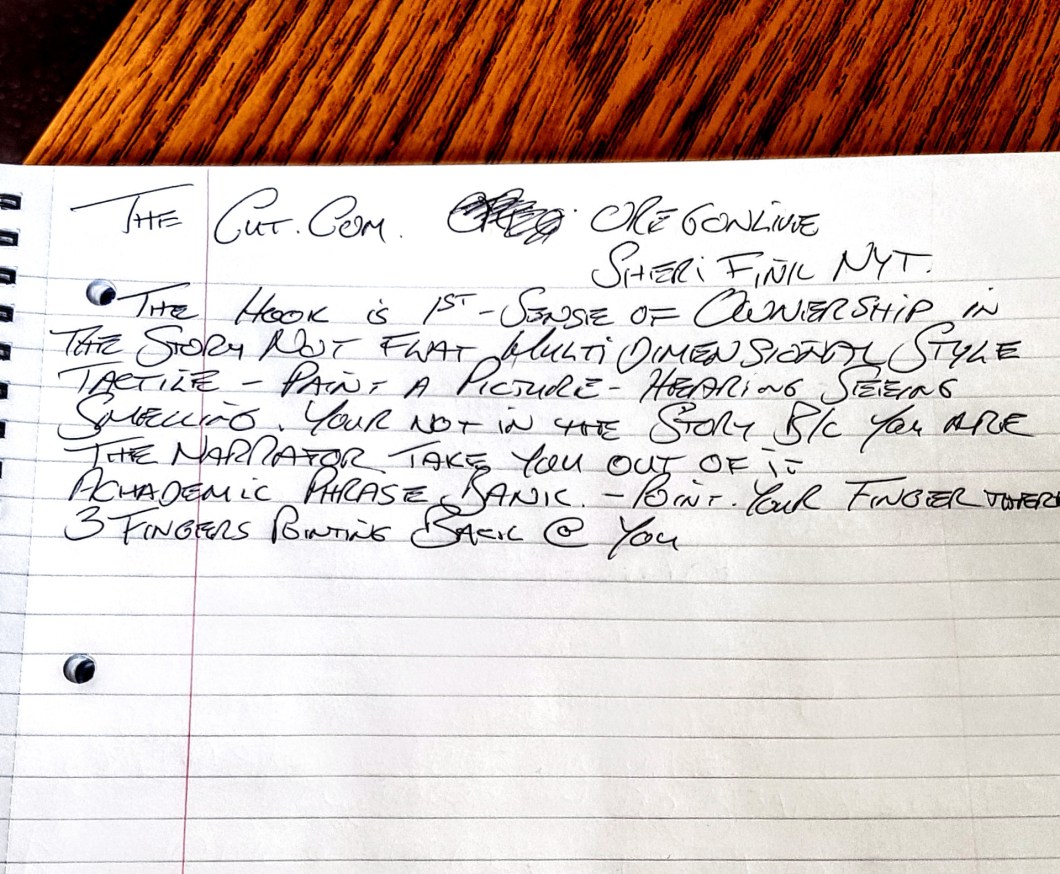 THE CUT.COM. OREGONLIVE
SHERI FINK NYT.
THE HOOK iS 1ST - SENSE OF OWNERSHIP iN
THE STORY NOT FLAT MULTI DIMENSIONAL STYLE
TACTILE - PAINT A PICTURE - HEARING SEEING
SMELLING. YOUR NOT IN THE STORY B/C YOU ARE
THE NARRATOR TAKE YOU OUT OF iT
ACHADEMIC PHRASE BANK. - POINT. YOUR FINGER
3 FINGERS POINTING BACK @ YOU